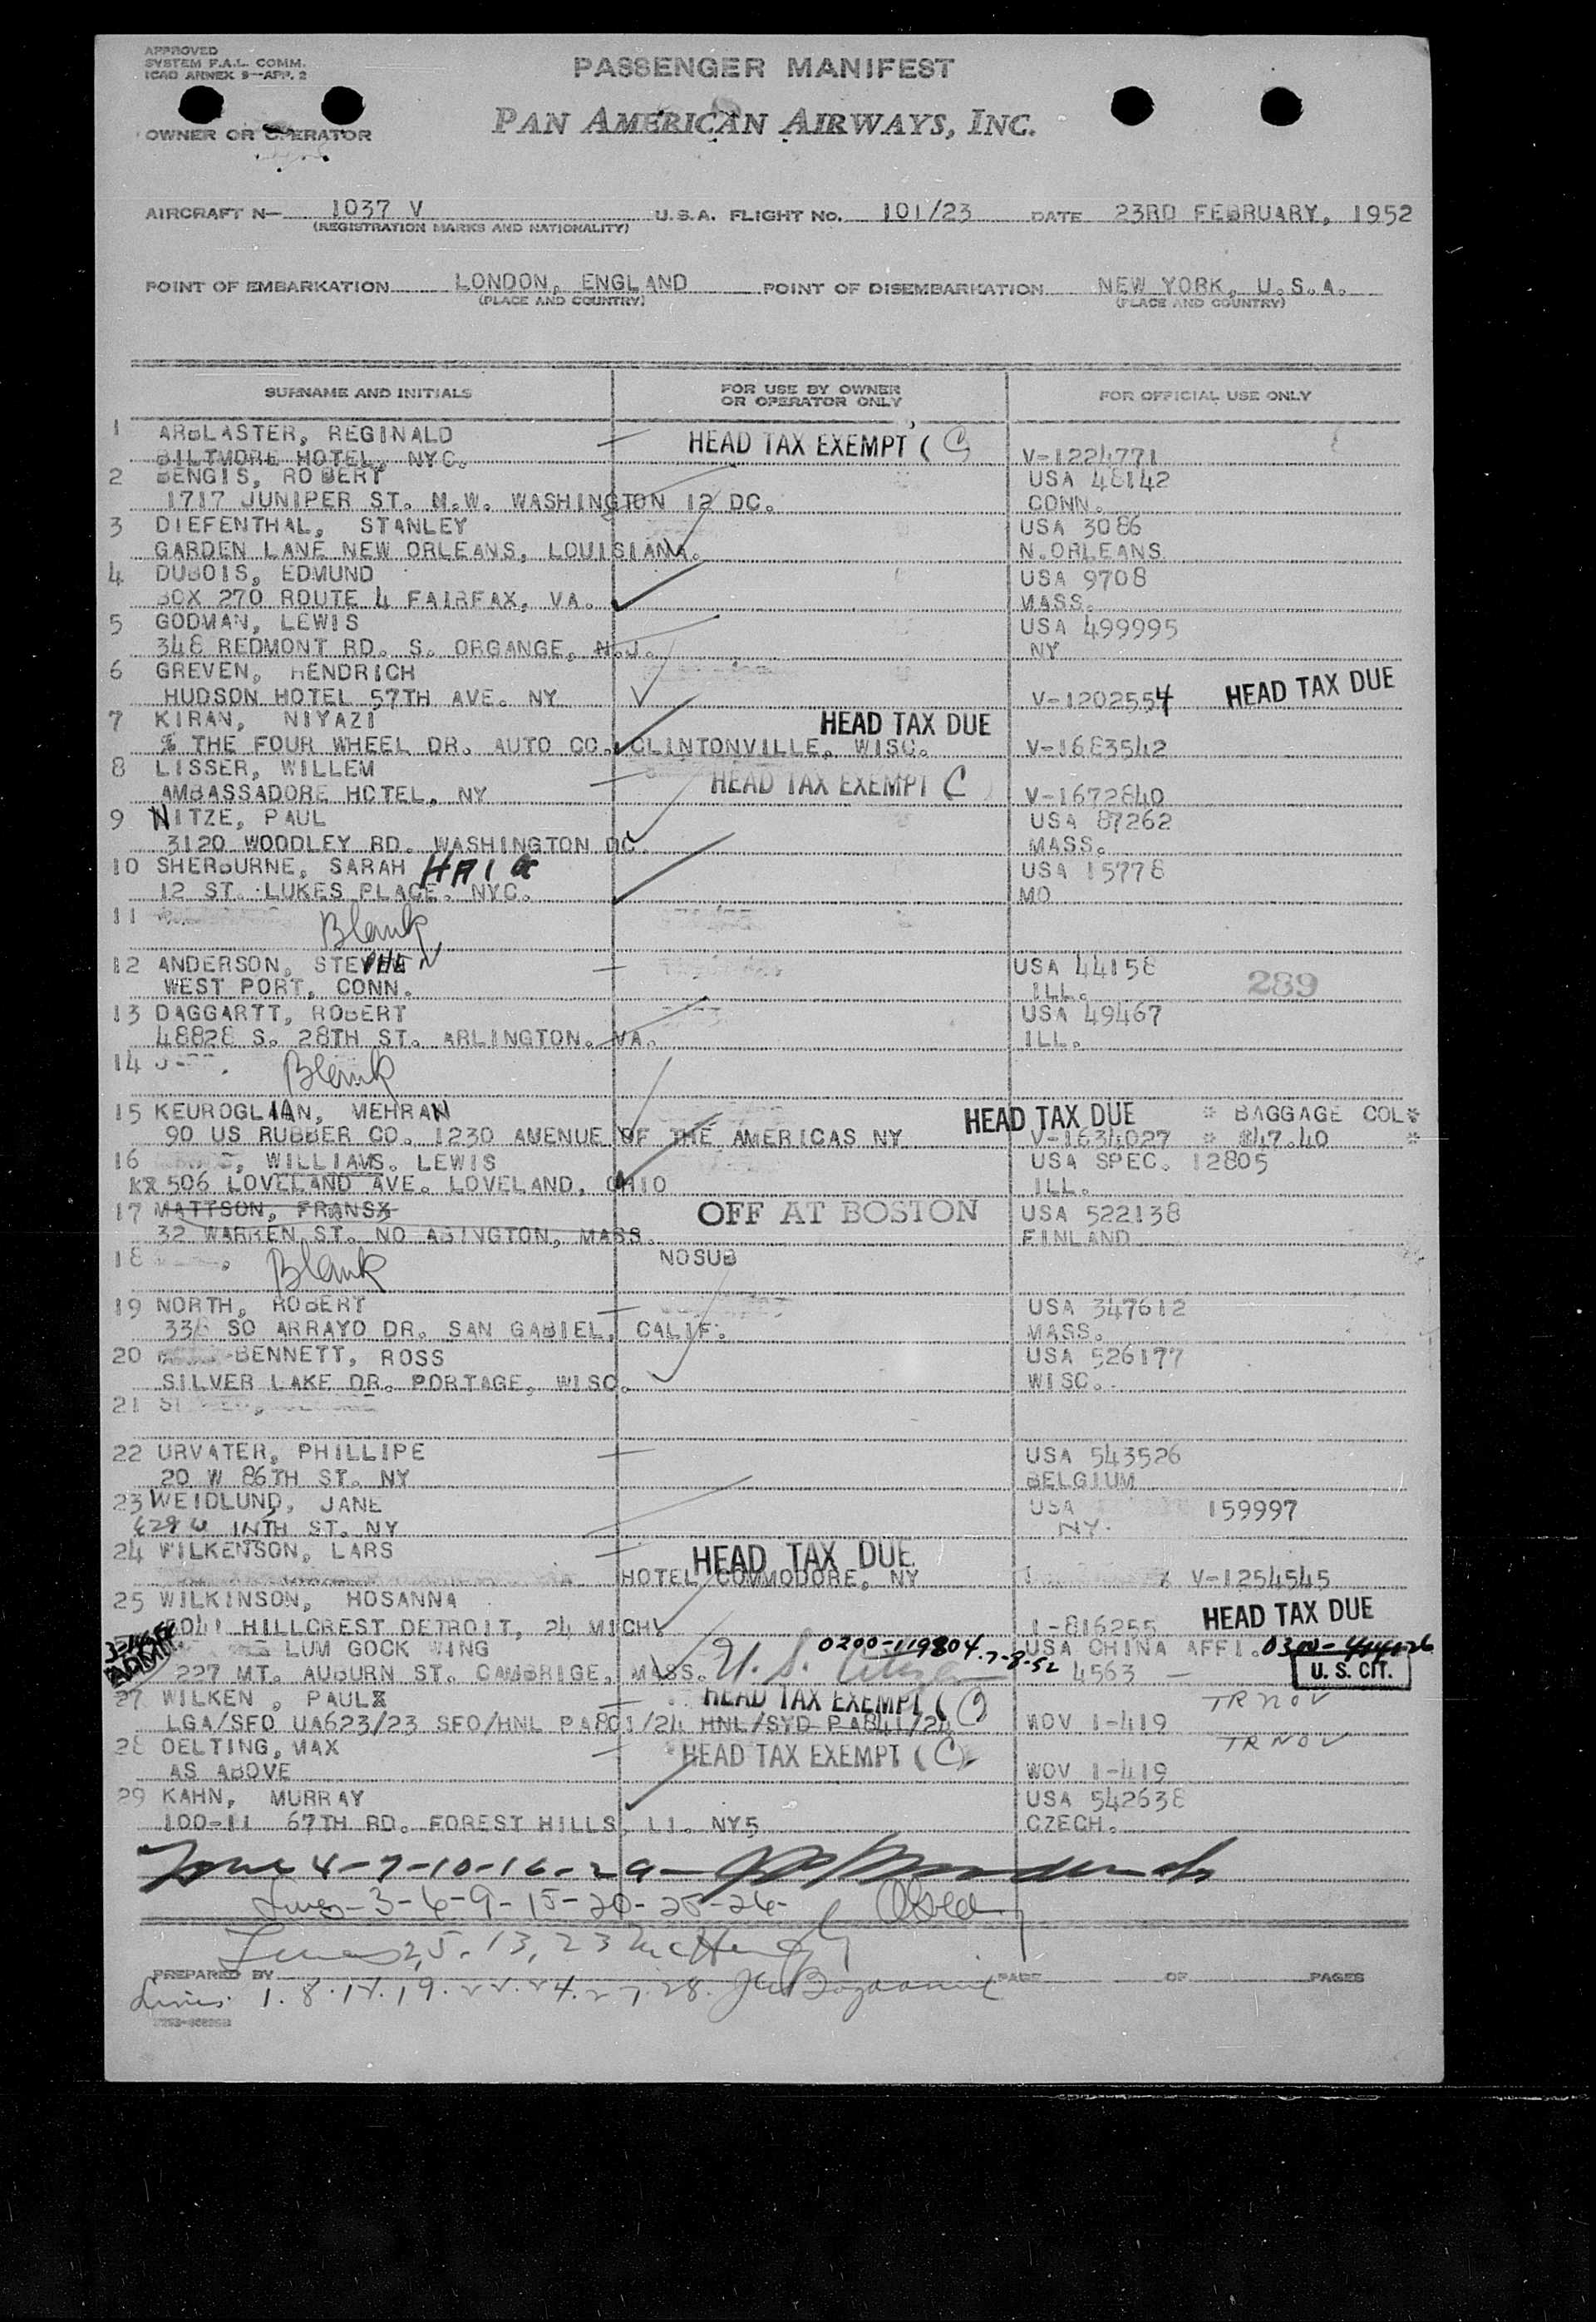 APPROVED
SYSTEM F.A.L. COMM.
ICAO ANNEX 9—APP. 2
PASSENGER MANIFEST
OWNER OR OPERATOR
PAN AMERICAN AIRWAYS, INC.
AIRCRAFT N— 1037 V U.S.A. FLIGHT NO. 101/23 DATE 23RD FEBRUARY, 1952
(REGISTRATION MARKS AND NATIONALITY)
POINT OF EMBARKATION LONDON, ENGLAND POINT OF DISEMBARKATION NEW YORK, U.S.A.
(PLACE AND COUNTRY) (PLACE AND COUNTRY)
SURNAME AND INITIALS FOR USE BY OWNER OR OPERATOR ONLY FOR OFFICIAL USE ONLY
1 ARBLASTER, REGINALD HEAD TAX EXEMPT (C)
BILTMORE HOTEL, NYC. V-1224771
2 BENGIS, ROBERT USA 48142
1717 JUNIPER ST. N.W. WASHINGTON 12 DC. CONN.
3 DIEFENTHAL, STANLEY USA 3086
GARDEN LANE NEW ORLEANS, LOUISIANA. N.ORLEANS
4 DUBOIS, EDMUND USA 9708
BOX 270 ROUTE 4 FAIRFAX, VA. MASS.
5 GODMAN, LEWIS USA 499995
348 REDMONT RD. S. ORGANGE, N.J. NY
6 GREVEN, HENDRICH
HUDSON HOTEL 57TH AVE. NY V-1202554 HEAD TAX DUE
7 KIRAN, NIYAZI HEAD TAX DUE
% THE FOUR WHEEL DR. AUTO CO. CLINTONVILLE, WISC. V-1683542
8 LISSER, WILLEM HEAD TAX EXEMPT (C
AMBASSADORE HOTEL, NY V-1672840
9 NITZE, PAUL USA 87262
3120 WOODLEY RD. WASHINGTON DC. MASS.
10 SHERBURNE, SARAH HAIG USA 15778
12 ST. LUKES PLACE. NYC. MO
11 Blank
12 ANDERSON, STEPHEN USA 44158
WEST PORT, CONN. ILL. 289
13 DAGGARTT, ROBERT USA 49467
48828 S. 28TH ST. ARLINGTON. VA. ILL.
14 Blank
15 KEUROGLIAN, MEHRAN HEAD TAX DUE * BAGGAGE COL*
90 US RUBBER CO. 1230 AMENUE OF THE AMERICAS NY V-1634027 * $47.40 *
16 WILLIAMS. LEWIS USA SPEC. 12805
506 LOVELAND AVE. LOVELAND, OHIO ILL.
17 MATTSON, FRANSX OFF AT BOSTON USA 522138
32 WARREN ST. NO ABINGTON, MASS. FINLAND
18 Blank NOSUB
19 NORTH, ROBERT USA 347612
338 SO ARRAYO DR. SAN GABIEL, CALIF. MASS.
20 BENNETT, ROSS USA 526177
SILVER LAKE DR. PORTAGE, WISC. WISC.
21
22 URVATER, PHILLIPE USA 543526
20 W 86TH ST. NY BELGIUM
23 WEIDLUND, JANE USA 159997
ST. NY NY.
24 WILKENSON, LARS HEAD TAX DUE
HOTEL COMMODORE, NY V-1254545
25 WILKINSON, HOSANNA
HILLCREST DETROIT, 24 MICH. I-816255 HEAD TAX DUE
LUM GOCK WING 0200-119804 7-8-52 USA CHINA AFFI.
ADMIT 227 MT. AUBURN ST. CAMBRIGE, MASS. U.S. Citizen 4563 — U. S. CIT.
27 WILKEN , PAULX HEAD TAX EXEMPT (C) TR NOV
LGA/SFO UA623/23 SFO/HNL PA801/24 HNL/SYD PA841/24 WOV 1-419
28 OELTING, MAX HEAD TAX EXEMPT (C) TR NOV
AS ABOVE WOV 1-419
29 KAHN, MURRAY USA 542638
100-11 67TH RD. FOREST HILLS, LI. NY5 CZECH.
4-7-10-16-29-
Lines-3-6-9-15-20-25-26-
Lines 2,5.13,23 McHenry
PREPARED BY PAGE OF PAGES
Lines. 1.8.12.19.22.24.27.28.